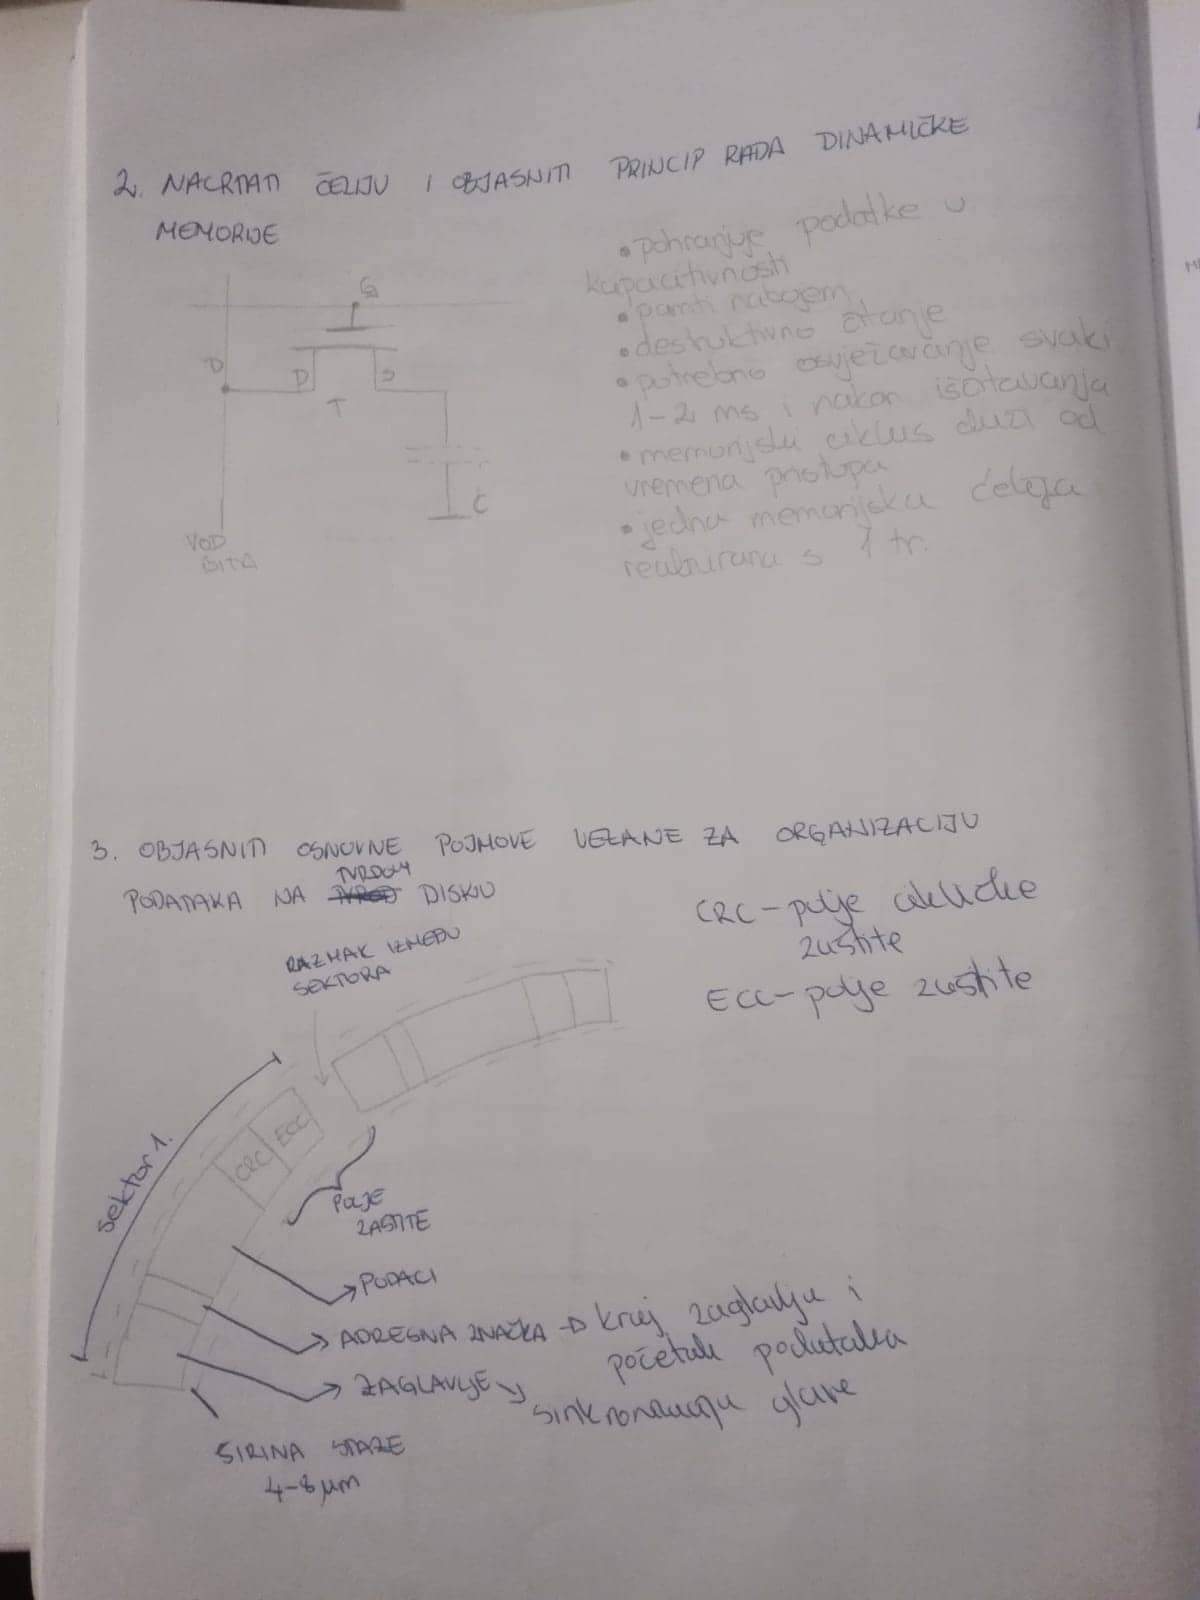 2. NACRTATI ČELIJU I OBJASNITI PRINCIP RADA DINAMIČKE
MEMORIJE
• pohranjuje podatke u
kapacitivnosti
• pamti nabojem
• destruktivno čitanje
• potrebno osvježavanje svaki
1-2 ms i nakon iščitavanja
• memorijski ciklus duži od
vremena pristupa
• jedna memorijska ćelija
realizirana s 1 tr.
G
D
D
S
T
C
VOD
BITA
3. OBJASNITI OSNOVNE POJMOVE VEZANE ZA ORGANIZACIJU
TVRDOM
PODATAKA NA DISKU
CRC - polje cikličke
zaštite
ECC - polje zaštite
RAZMAK IZMEĐU
SEKTORA
Sektor 1.
CRC
ECC
POLJE
ZAŠTITE
PODACI
ADRESNA ZNAČKA → kraj zaglavlja i
početak podataka
ZAGLAVLJE → sinkronizaciju glave
ŠIRINA STAZE
4-8 μm